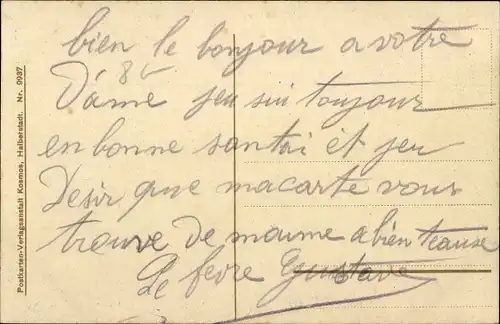 bien le bonjour a votre
Dame jeu sui toujour
en bonne santai et jeu
Desir que macarte vous
trouve de maume a bien
Le fevre Gustave
Postkarten-Verlagsanstalt Kosmos, Halberstadt. Nr. 9937